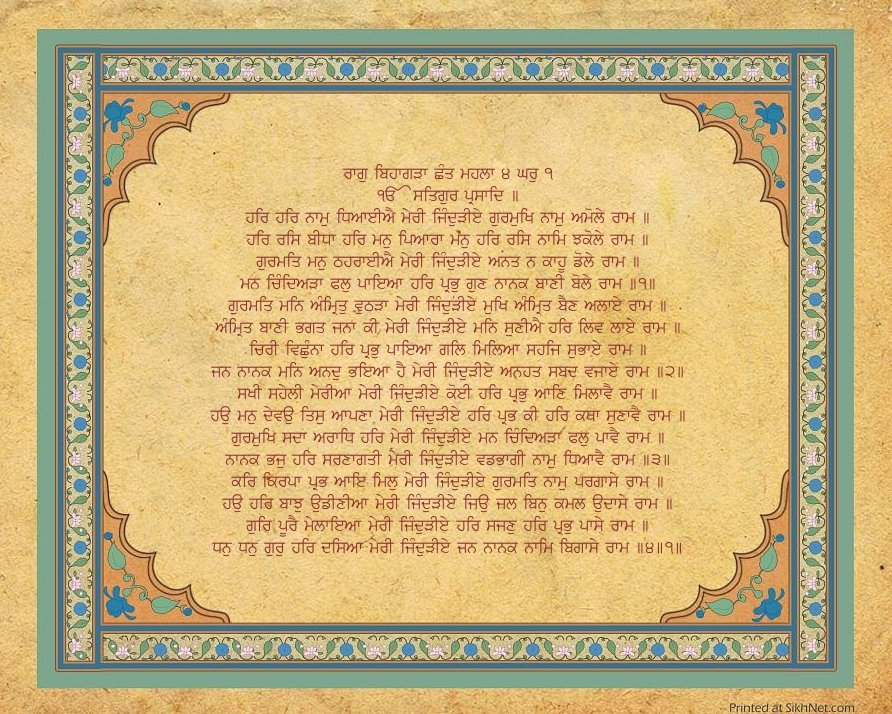 ਰਾਗੁ ਬਿਹਾਗੜਾ ਛੰਤ ਮਹਲਾ ੪ ਘਰੁ ੧
ੴ ਸਤਿਗੁਰ ਪ੍ਰਸਾਦਿ ॥
ਹਰਿ ਹਰਿ ਨਾਮੁ ਧਿਆਈਐ ਮੇਰੀ ਜਿੰਦੁੜੀਏ ਗੁਰਮੁਖਿ ਨਾਮੁ ਅਮੋਲੇ ਰਾਮ ॥
ਹਰਿ ਰਸਿ ਬੀਧਾ ਹਰਿ ਮਨੁ ਪਿਆਰਾ ਮਨੁ ਹਰਿ ਰਸਿ ਨਾਮਿ ਝਕੋਲੇ ਰਾਮ ॥
ਗੁਰਮਤਿ ਮਨੁ ਠਹਰਾਈਐ ਮੇਰੀ ਜਿੰਦੁੜੀਏ ਅਨਤ ਨ ਕਾਹੂ ਡੋਲੇ ਰਾਮ ॥
ਮਨ ਚਿੰਦਿਅੜਾ ਫਲੁ ਪਾਇਆ ਹਰਿ ਪ੍ਰਭੁ ਗੁਣ ਨਾਨਕ ਬਾਣੀ ਬੋਲੇ ਰਾਮ ॥੧॥
ਗੁਰਮਤਿ ਮਨਿ ਅੰਮ੍ਰਿਤੁ ਵੁਠੜਾ ਮੇਰੀ ਜਿੰਦੁੜੀਏ ਮੁਖਿ ਅੰਮ੍ਰਿਤ ਬੈਣ ਅਲਾਏ ਰਾਮ ॥
ਅੰਮ੍ਰਿਤ ਬਾਣੀ ਭਗਤ ਜਨਾ ਕੀ ਮੇਰੀ ਜਿੰਦੁੜੀਏ ਮਨਿ ਸੁਣੀਐ ਹਰਿ ਲਿਵ ਲਾਏ ਰਾਮ ॥
ਚਿਰੀ ਵਿਛੁੰਨਾ ਹਰਿ ਪ੍ਰਭੁ ਪਾਇਆ ਗਲਿ ਮਿਲਿਆ ਸਹਜਿ ਸੁਭਾਏ ਰਾਮ ॥
ਜਨ ਨਾਨਕ ਮਨਿ ਅਨਦੁ ਭਇਆ ਹੈ ਮੇਰੀ ਜਿੰਦੁੜੀਏ ਅਨਹਤ ਸਬਦ ਵਜਾਏ ਰਾਮ ॥੨॥
ਸਖੀ ਸਹੇਲੀ ਮੇਰੀਆ ਮੇਰੀ ਜਿੰਦੁੜੀਏ ਕੋਈ ਹਰਿ ਪ੍ਰਭੁ ਆਣਿ ਮਿਲਾਵੈ ਰਾਮ ॥
ਹਉ ਮਨੁ ਦੇਵਉ ਤਿਸੁ ਆਪਣਾ ਮੇਰੀ ਜਿੰਦੁੜੀਏ ਹਰਿ ਪ੍ਰਭ ਕੀ ਹਰਿ ਕਥਾ ਸੁਣਾਵੈ ਰਾਮ ॥
ਗੁਰਮੁਖਿ ਸਦਾ ਅਰਾਧਿ ਹਰਿ ਮੇਰੀ ਜਿੰਦੁੜੀਏ ਮਨ ਚਿੰਦਿਅੜਾ ਫਲੁ ਪਾਵੈ ਰਾਮ ॥
ਨਾਨਕ ਭਜੁ ਹਰਿ ਸਰਣਾਗਤੀ ਮੇਰੀ ਜਿੰਦੁੜੀਏ ਵਡਭਾਗੀ ਨਾਮੁ ਧਿਆਵੈ ਰਾਮ ॥੩॥
ਕਰਿ ਕਿਰਪਾ ਪ੍ਰਭ ਆਇ ਮਿਲੁ ਮੇਰੀ ਜਿੰਦੁੜੀਏ ਗੁਰਮਤਿ ਨਾਮੁ ਪਰਗਾਸੇ ਰਾਮ ॥
ਹਉ ਹਰਿ ਬਾਝੁ ਉਡੀਣੀਆ ਮੇਰੀ ਜਿੰਦੁੜੀਏ ਜਿਉ ਜਲ ਬਿਨੁ ਕਮਲ ਉਦਾਸੇ ਰਾਮ ॥
ਗੁਰਿ ਪੂਰੈ ਮੇਲਾਇਆ ਮੇਰੀ ਜਿੰਦੁੜੀਏ ਹਰਿ ਸਜਣੁ ਹਰਿ ਪ੍ਰਭੁ ਪਾਸੇ ਰਾਮ ॥
ਧਨੁ ਧਨੁ ਗੁਰੂ ਹਰਿ ਦਸਿਆ ਮੇਰੀ ਜਿੰਦੁੜੀਏ ਜਨ ਨਾਨਕ ਨਾਮਿ ਬਿਗਾਸੇ ਰਾਮ ॥੪॥੧॥
Printed at SikhNet.com